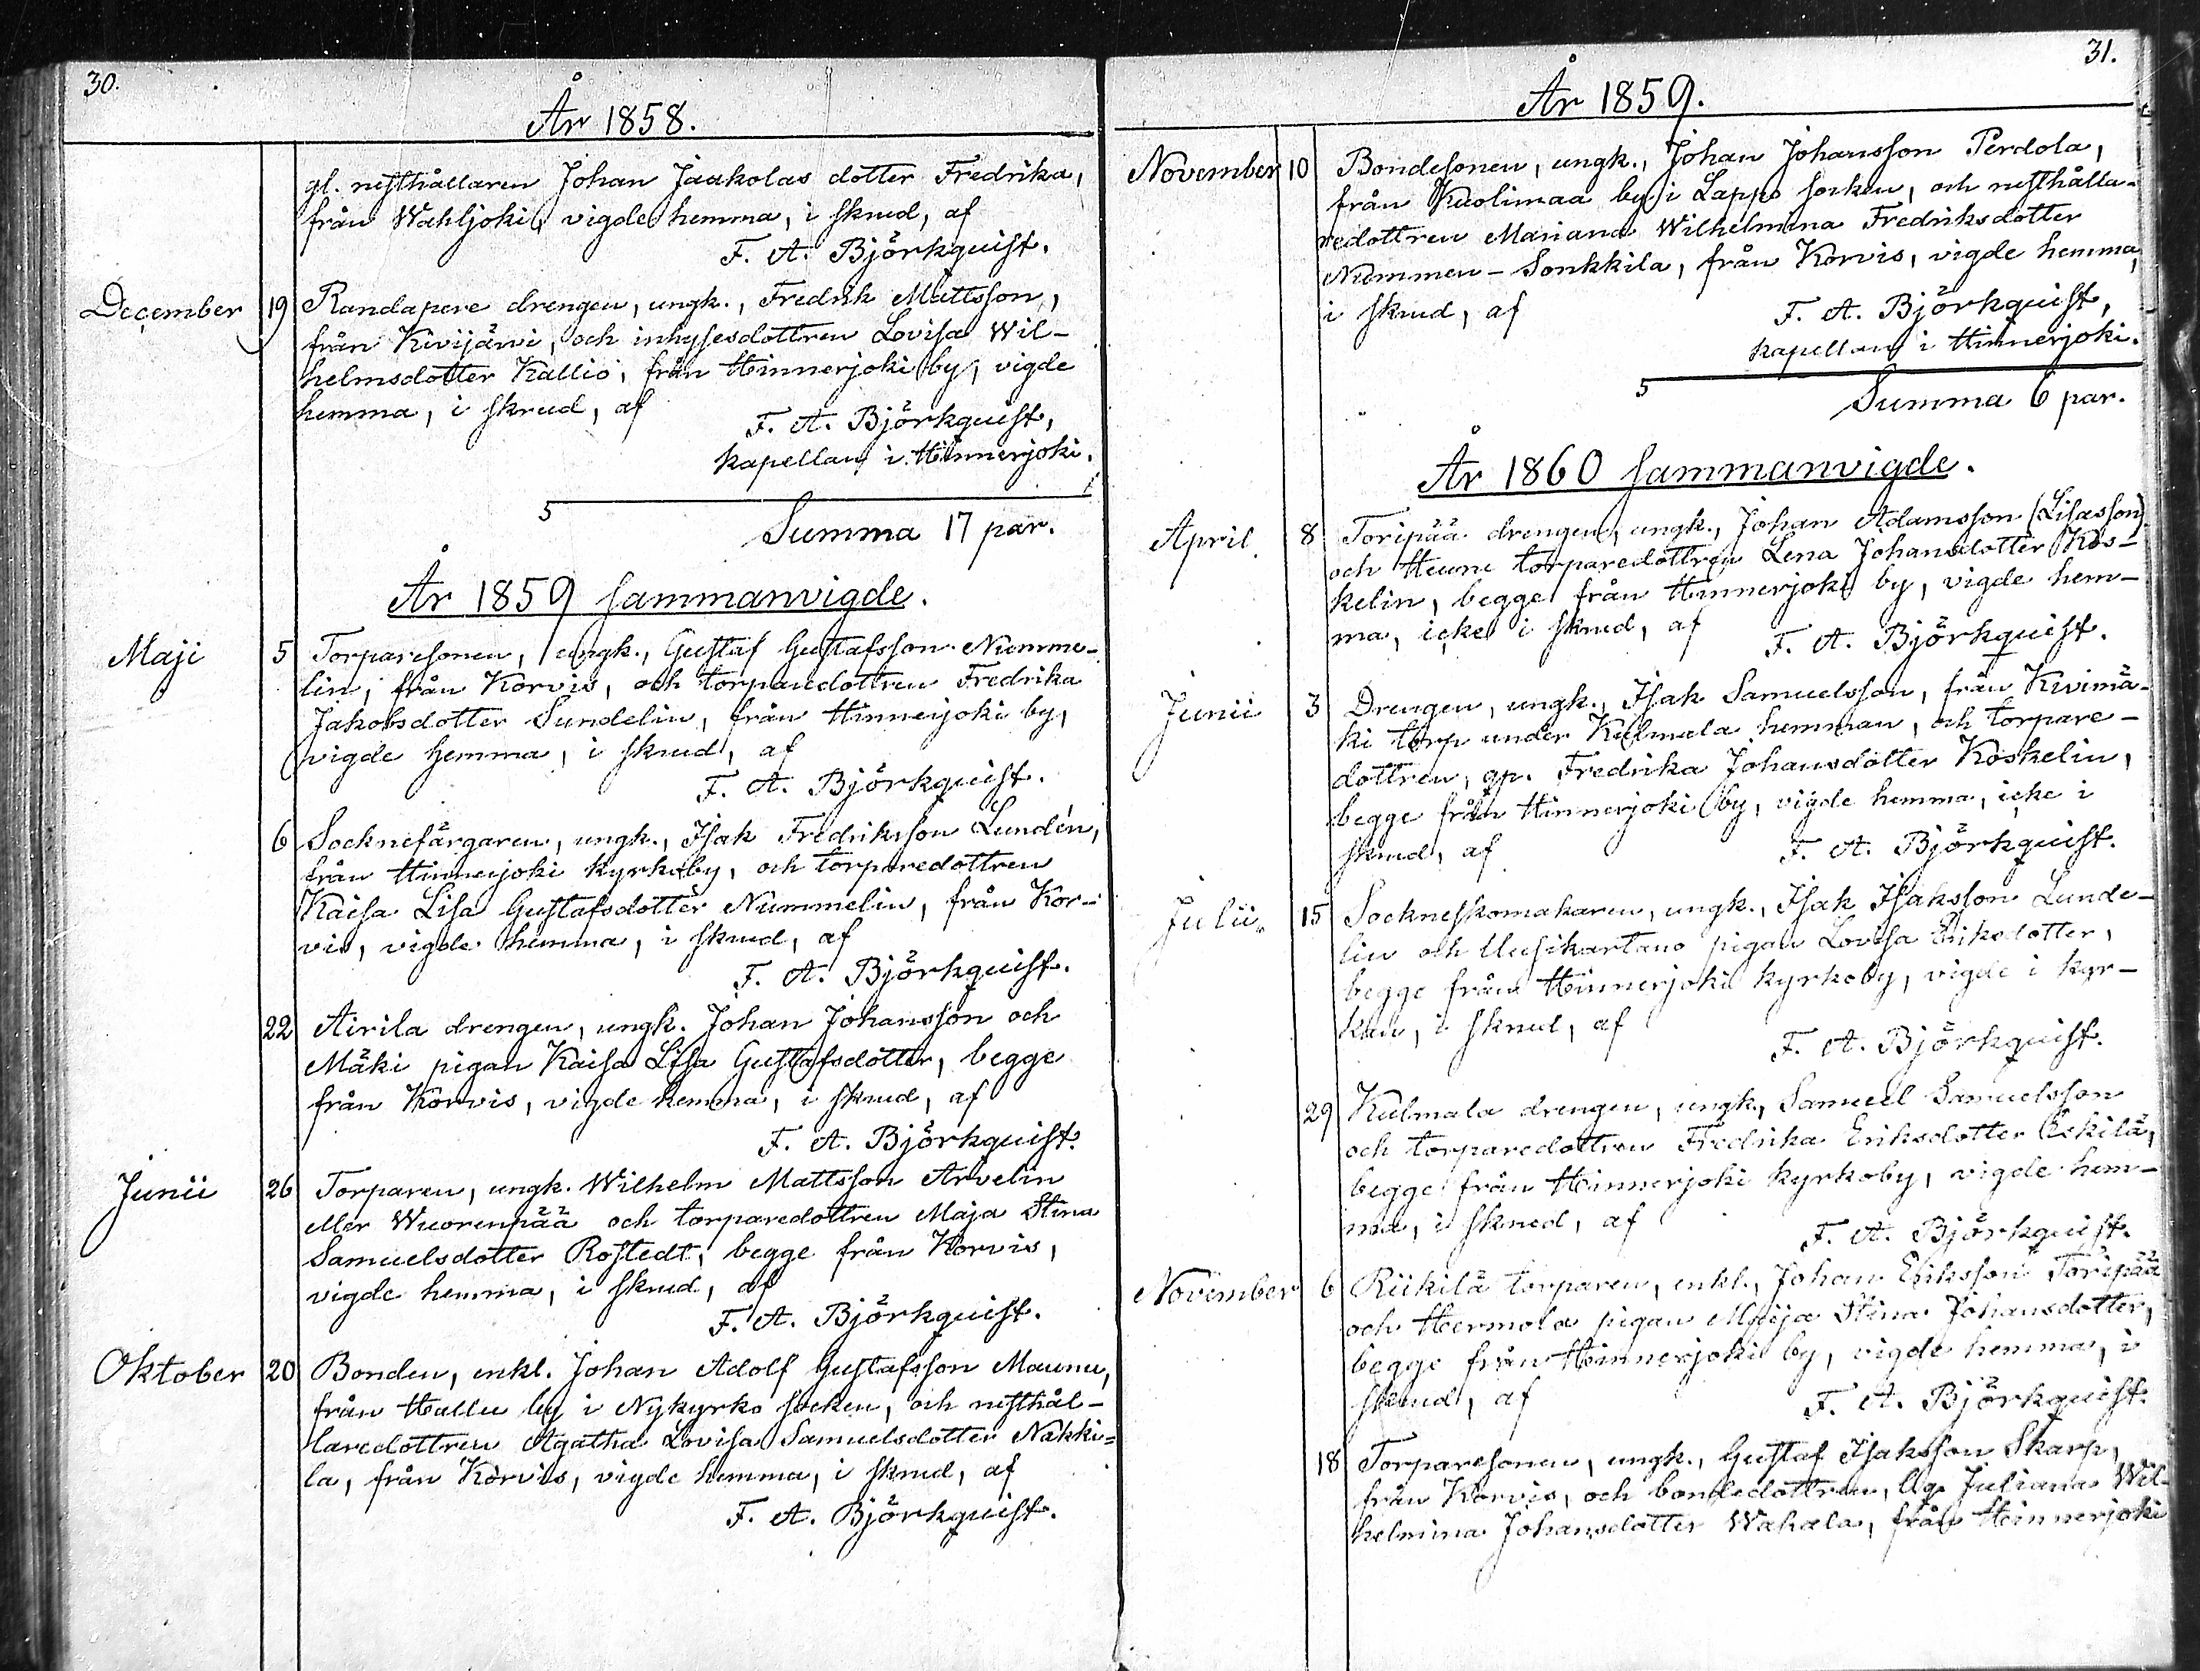 30.
År 1858.
gl. rusthållaren Johan Jaakolas dotter Fredrika,
från Wahljoki, vigde hemma, i skrud, af
F. A. Björkquist.
December 19 Randapere drengen, ungk., Fredrik Mattsson,
från Kivijärvi, och inhysesdottren Lovisa Wil-
helmsdotter Kallio, från Hinnerjoki by, vigde
hemma, i skrud, af
F. A. Björkquist,
kapellan i Hinnerjoki.
5
Summa 17 par.
År 1859 sammanvigde.
Maji 5 Torparesonen, ungk., Gustaf Gustafsson Numme-
lin, från Korvis, och torparedottren Fredrika
Jakobsdotter Sundelin, från Hinnerjoki by,
vigde hemma, i skrud, af
F. A. Björkquist.
6 Socknefärgaren, ungk., Isak Fredriksson Lundén,
från Hinnerjoki kyrkoby, och torparedottren
Kaisa Lisa Gustafsdotter Nummelin, från Kor-
vis, vigde hemma, i skrud, af
F. A. Björkquist.
22 Airila drengen, ungk. Johan Johansson och
Mäki pigan Kaisa Lisa Gustafsdotter, begge
från Korvis, vigde hemma, i skrud, af
F. A. Björkquist.
Junii 26 Torparen, ungk. Wilhelm Mattsson Arvelin
eller Wuorenpää och torparedottren Maja Stina
Samuelsdotter Rostedt, begge från Korvis,
vigde hemma, i skrud, af
F. A. Björkquist.
Oktober 20 Bonden, enkl. Johan Adolf Gustafsson Maunu,
från Hallu by i Nykyrko socken, och rusthål-
laredottren Agatha Lovisa Samuelsdotter Nakki=
la, från Korvis, vigde hemma, i skrud, af
F. A. Björkquist.
31.
År 1859.
November 10 Bondesonen, ungk., Johan Johansson Perdola,
från Kuolimaa by i Lappo socken, och rusthålla-
redottren Mariana Wilhelmina Fredriksdotter
Nummen-Sonkkila, från Korvis, vigde hemma,
i skrud, af
F. A. Björkquist,
kapellan i Hinnerjoki.
5
Summa 6 par.
År 1860 sammanvigde.
April 8 Toripää drengen, ungk., Johan Adamsson (Lisasson)
och Heune torparedottren Lena Johansdotter Kos-
kelin, begge från Hinnerjoki by, vigde hem-
ma, icke i skrud, af
F. A. Björkquist.
Junii 3 Drengen, ungk., Isak Samuelsson, från Kivimä-
ki torp under Kulmala hemman, och torpare-
dottren, qp. Fredrika Johansdotter Koskelin,
begge från Hinnerjoki by, vigde hemma, icke i
skrud, af
F. A. Björkquist.
Julii. 15 Sockneskomakaren, ungk., Isak Isaksson Lunde-
lin och Uusikartano pigan Lovisa Eriksdotter,
begge från Hinnerjoki kyrkoby, vigde i kyr-
kan, i skrud, af
F. A. Björkquist.
29 Kulmala drengen, ungk., Samuel Samuelsson
och torparedottren Fredrika Eriksdotter Eskilä,
begge från Hinnerjoki kyrkoby, vigde hem-
ma, i skrud, af
F. A. Björkquist.
November 6 Riikilä torparen, enkl., Johan Eriksson Toripää
och Hermola pigan Maija Stina Johansdotter,
begge från Hinnerjoki by, vigde hemma, i
skrud, af
F. A. Björkquist.
18 Torparesonen, ungk., Gustaf Isaksson Skarp,
från Korvis, och bondedottren, Juliana Wil-
helmina Johansdotter Wakala, från Hinnerjoki